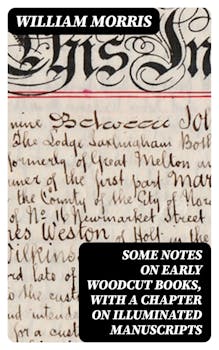 WILLIAM MORRIS
This In
mine Between Joh
The Lodge Saxlingham Both
formerly of Great Melton a
ner of the first part Mar
the County of the City of Nor
of No 16 Newmarket Street
es Weston of Holt in the
Wilkins
rd late of
to the custo
ent and inte
for a cust
SOME NOTES
ON EARLY
WOODCUT BOOKS,
WITH A CHAPTER
ON ILLUMINATED
MANUSCRIPTS